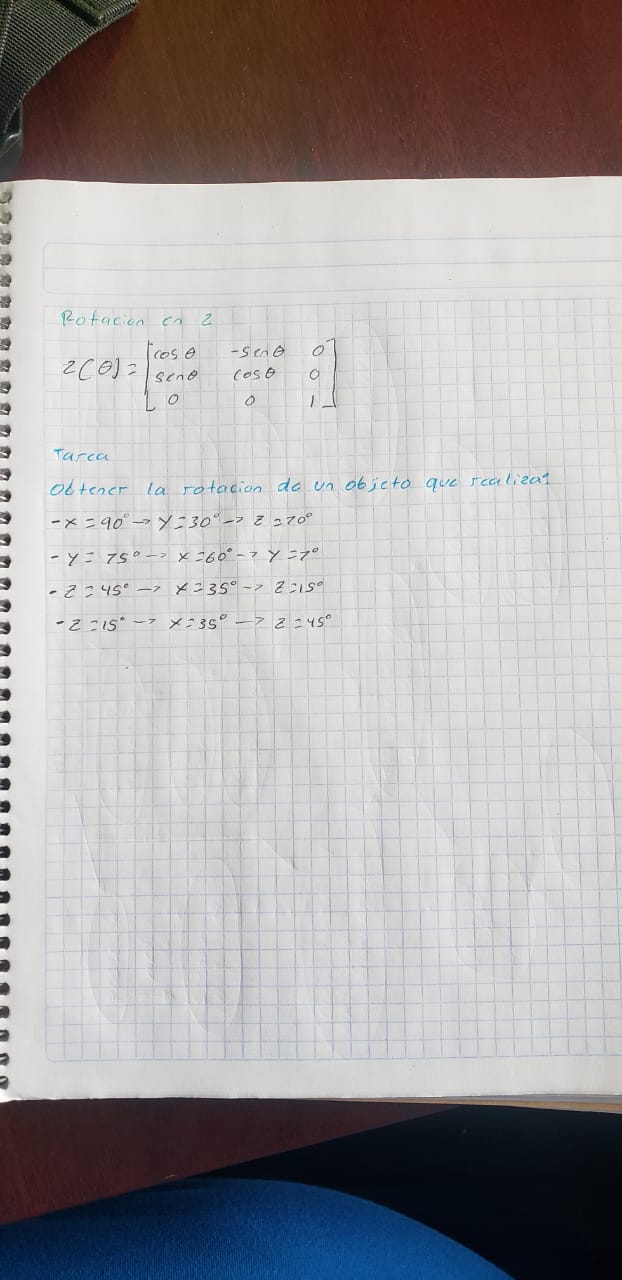 Rotacion en z
z(θ)= [cosθ -senθ 0
senθ cosθ 0
0 0 1]
Tarea
Obtener la rotacion de un objeto que realiza:
-x=90°→ y=30°→ z=70°
-y=75°→ x=60°→ y=7°
-z=45°→ x=35°→ z=15°
-z=15°→ x=35°→ z=45°